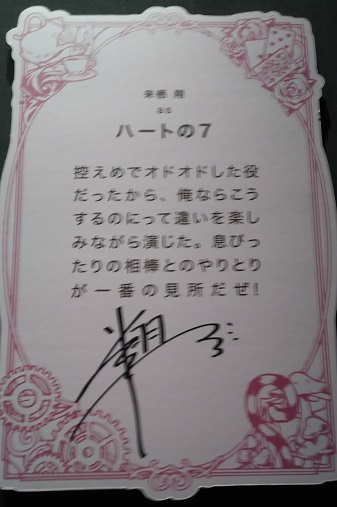 来栖 翔
as
ハートの7
控えめでオドオドした役
だったから、俺ならこう
するのにって違いを楽し
みながら演じた。息ぴっ
たりの相棒とのやりとり
が一番の見所だぜ!